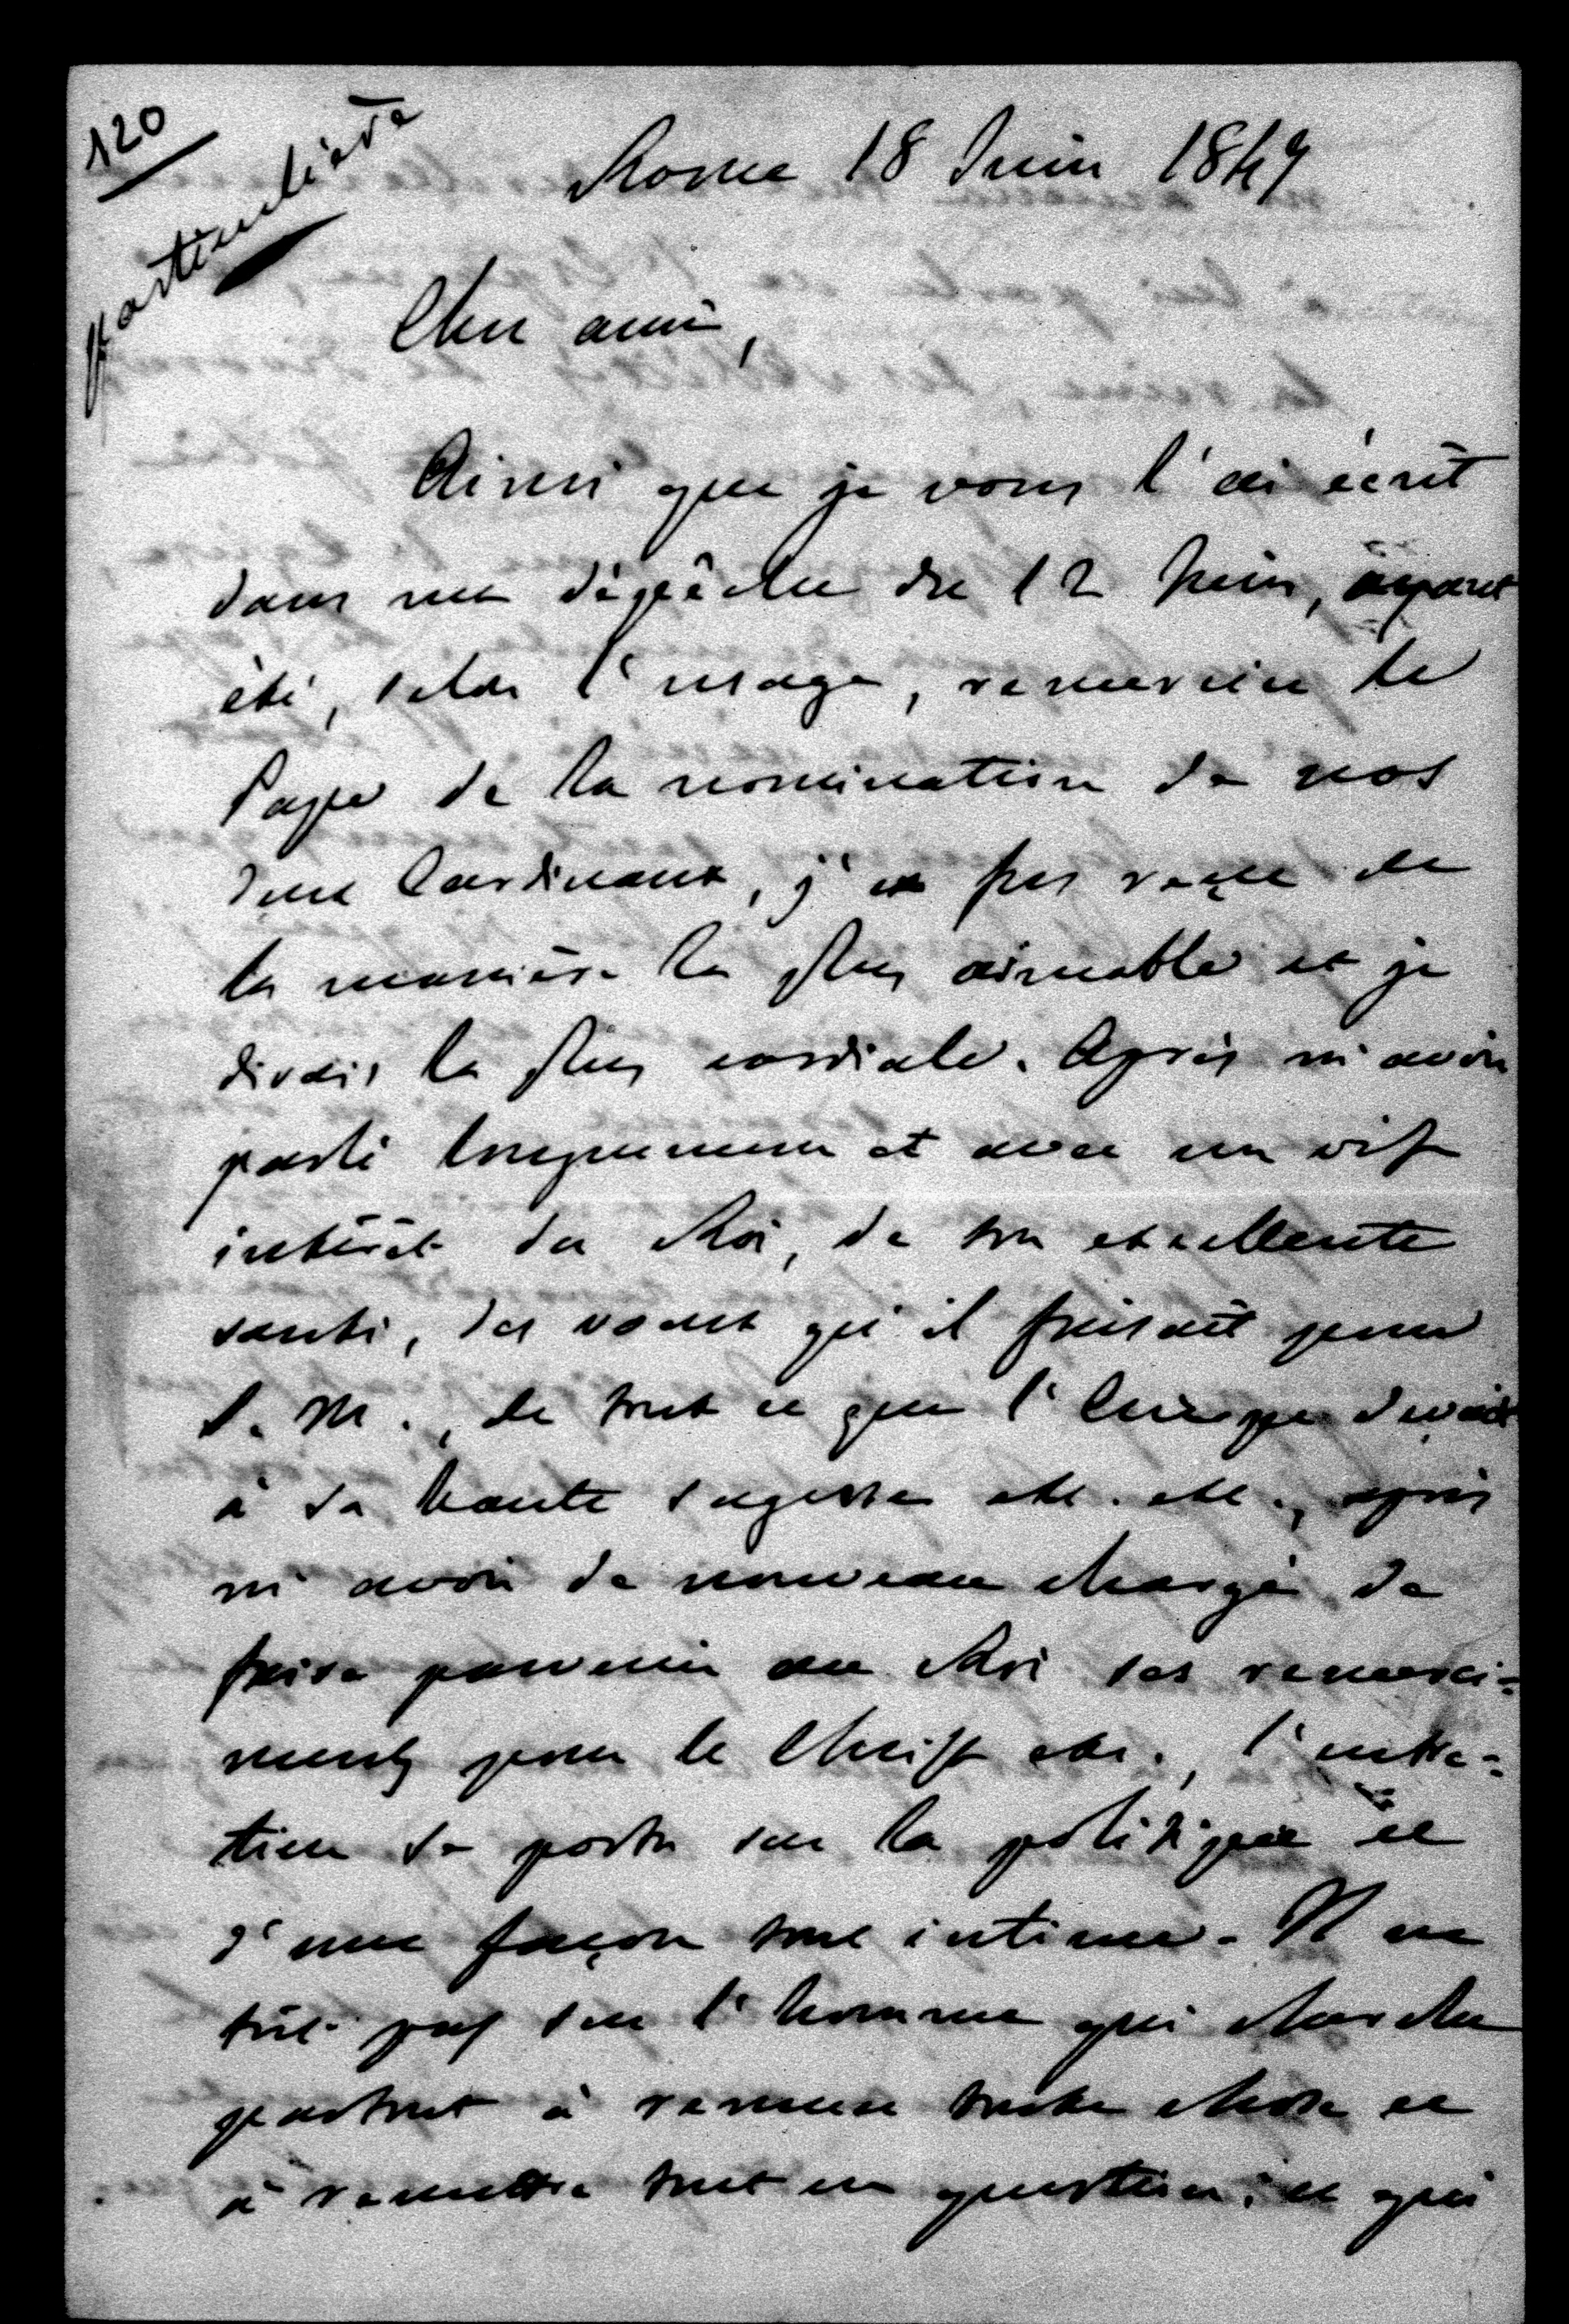 120
particulière
Rome 18 Juin 1847
Cher ami,
Ainsi que je vous l'ai écrit
dans ma dépêche du 12 Juin, ayant
été, selon l'usage, remercier le
Pape de la nomination de nos
deux Cardinaux, j'en fus reçu de
la manière la plus aimable et je
dirais la plus cordiale. Après m'avoir
parlé longuement et avec un vif
intérêt du Roi, de son excellente
santé, des voeux qu'il faisait pour
S. M., de tout ce que l'Europe devait
à sa haute sagesse etc. etc., après
m'avoir de nouveau chargé de
faire parvenir au Roi ses remerci=
ments pour le Christ etc., l'entre=
tien se porta sur la politique et
d'une façon tout intime. Il ne
tût pas sur l'homme qui cherche
partout à remuer toute chose et
à remettre tout en question; et qui